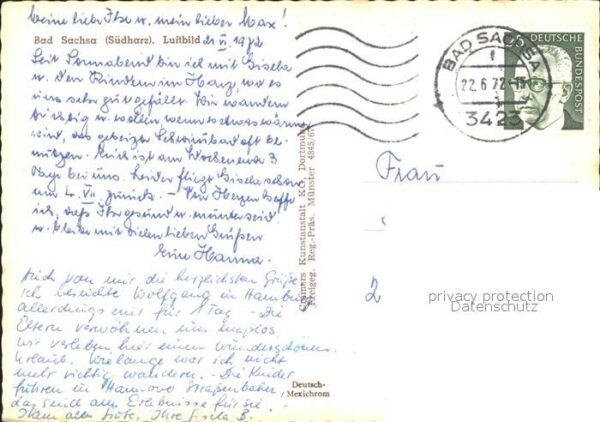 Meine liebe Ilse u. mein lieber Max!
Bad Sachsa (Südharz). Luftbild
21. VI. 1972
Seit Sonnabend bin ich mit Gisela
u. den Kindern im Harz, wo es
uns sehr gut gefällt. Wir wandern
tüchtig u. wollen, wenn es etwas wärmer
wird, das geheizte Schwimmbad oft be-
nutzen. Erich ist am Wochenende 3
Tage bei uns. Leider fliegt Gisela schon
am 4. VII. zurück. – Von Herzen hoffe
ich, daß Ihr gesund u. munter seid
u. bleibe mit vielen lieben Grüßen
Eure Hanna.
Auch von mir die herzlichsten Grüße
ich besuchte Wolfgang in Hamburg
allerdings nur für 1 Tag - Die
Eltern verwöhnen uns maßlos
wir verleben hier einen wunderschönen
Urlaub. Wie lange war ich nicht
mehr richtig wandern. - Die Kinder
führen in Hannover Straßenbahn,
das sind alles Erlebnisse für sie. -
Ihnen alles Gute, Ihre Gisela B.
Cramers Kunstanstalt KG, Dortmund
Freigeg. Reg.-Präs. Münster 4845/67
Deutsch-
Mexichrom
BAD SACHSA
22.6.72-15
3423
DEUTSCHE
BUNDESPOST
Frau
2
privacy protection
Datenschutz